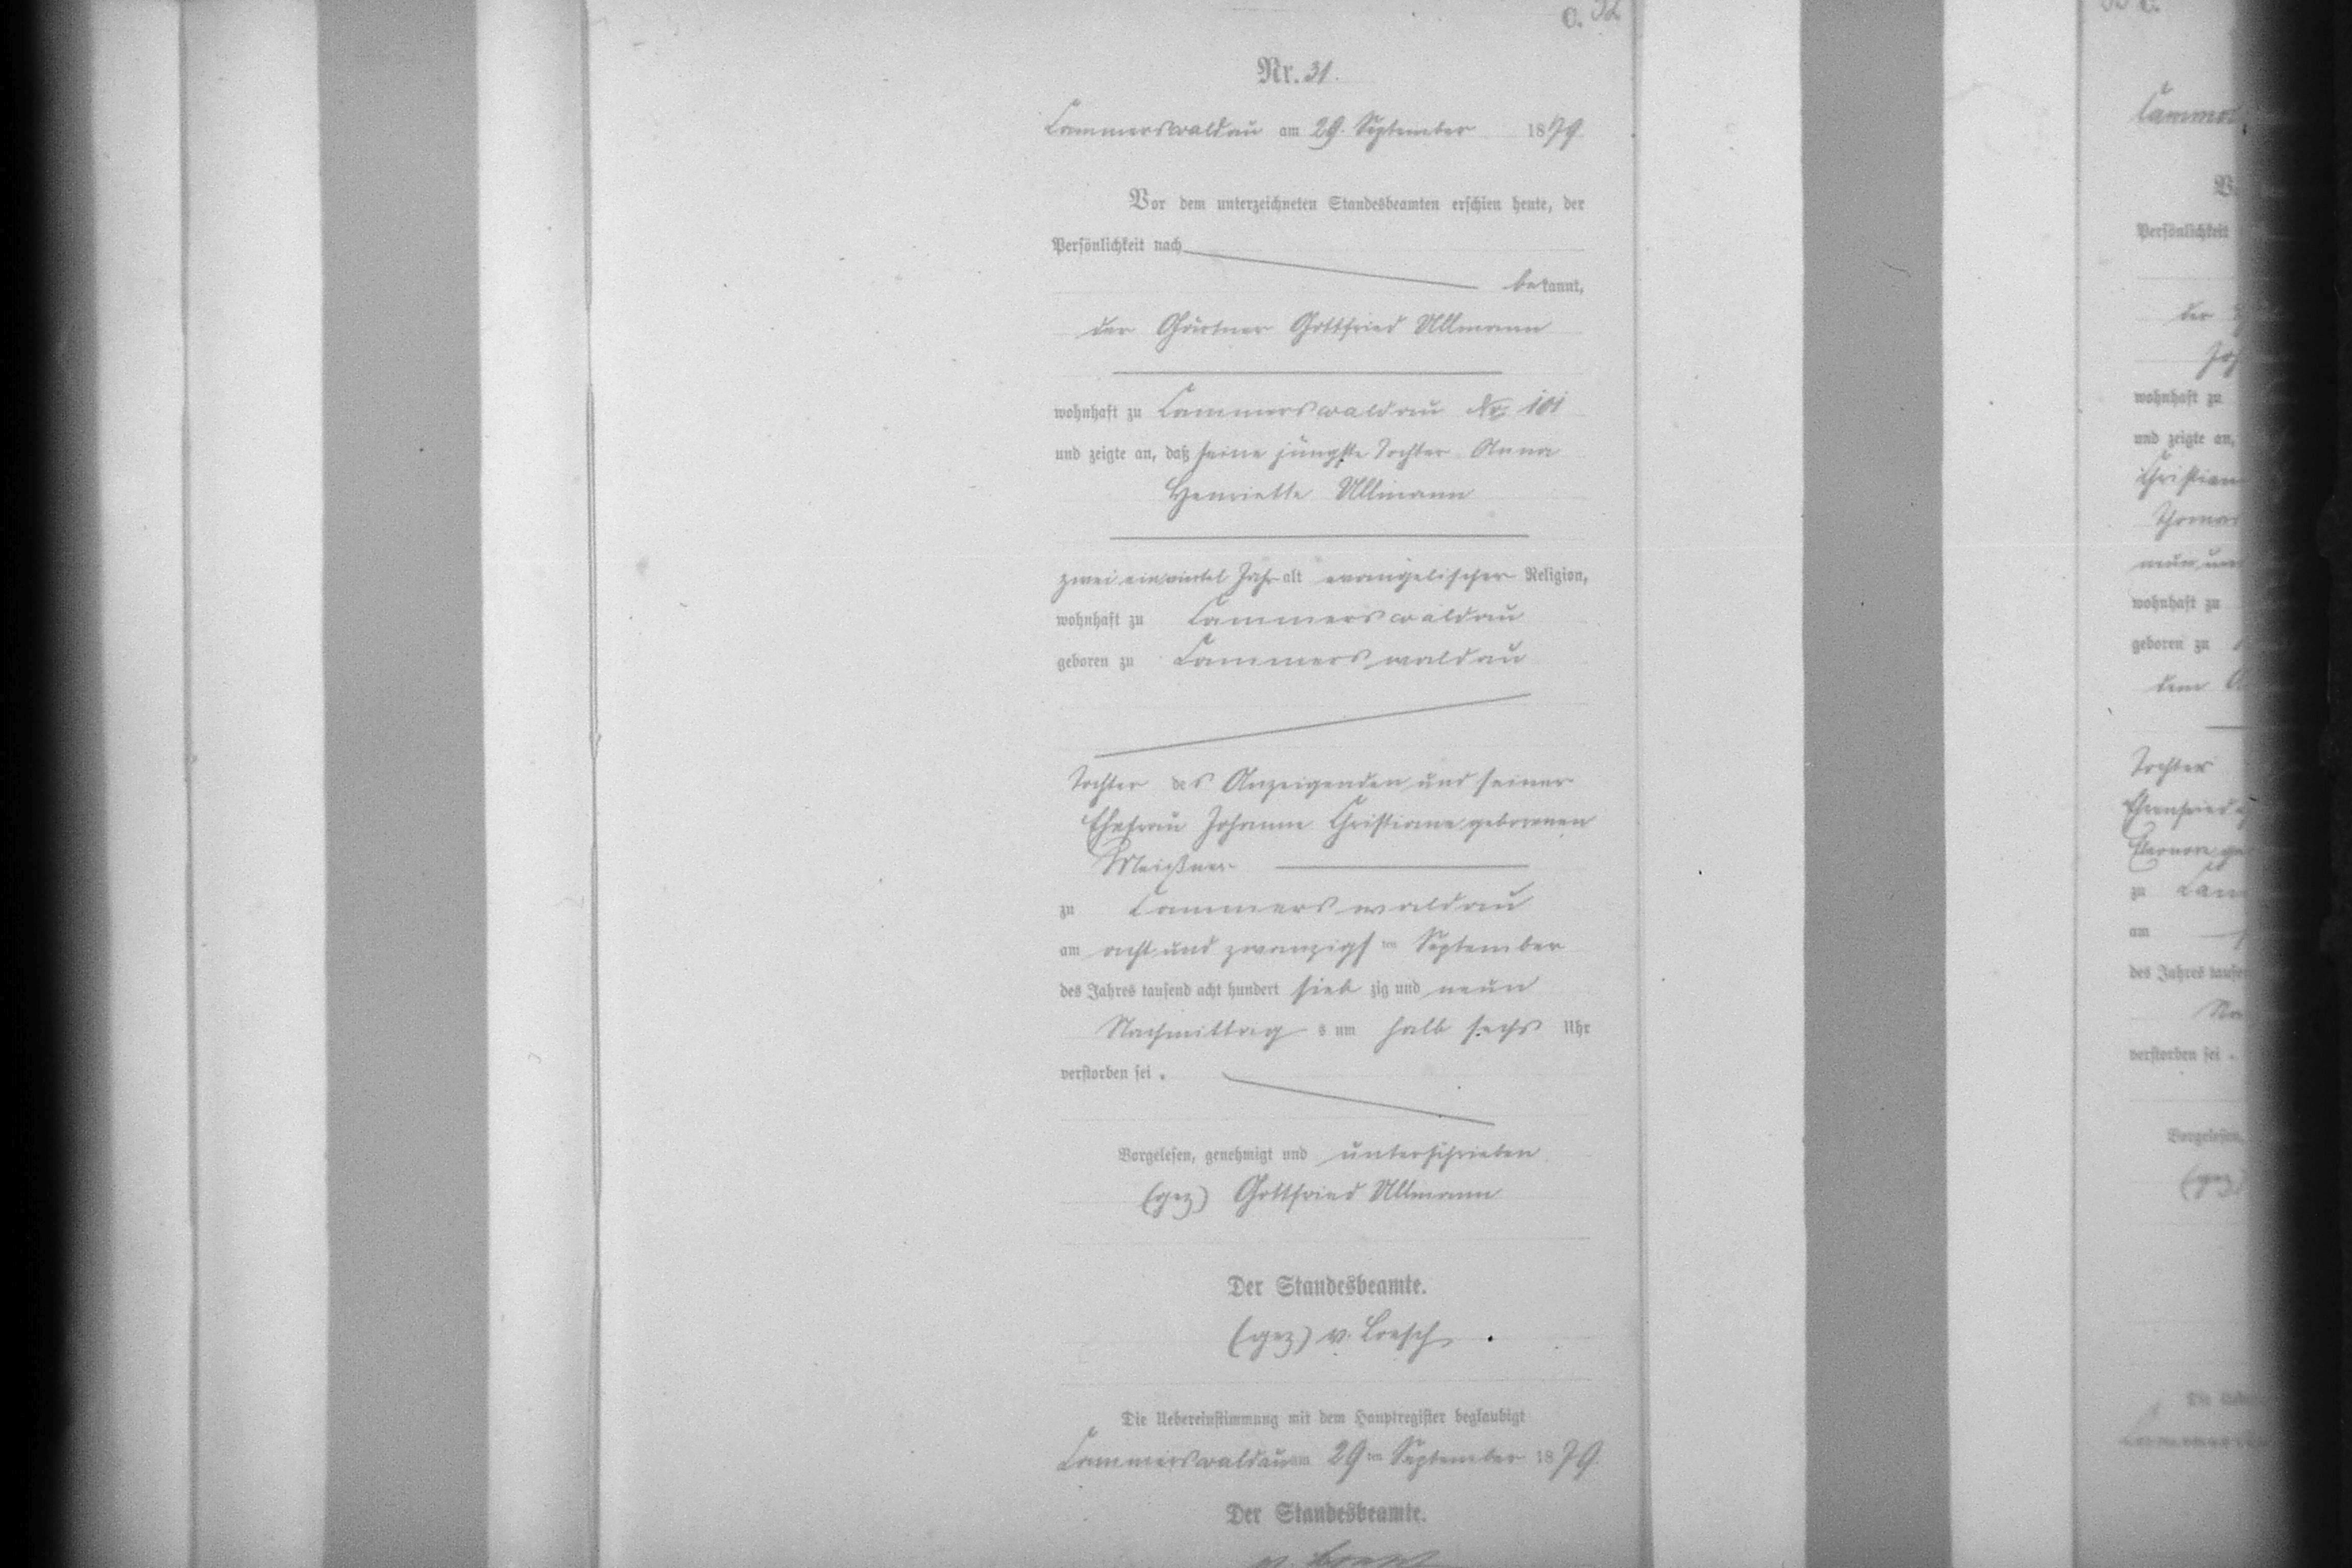 C.
Nr. 31.
Cammerswaldau am 29. September 1879
Vor dem unterzeichneten Standesbeamten erschien heute, der
Persönlichkeit nach
bekannt,
der Gärtner Gottfried Ullmann
wohnhaft zu Cammerswaldau No. 101
und zeigte an, daß seine jüngste Tochter Anna
Henriette Ullmann
zwei einviertel Jahr alt evangelischer Religion,
wohnhaft zu Cammerswaldau
geboren zu Cammerswaldau
Tochter des Anzeigenden und seiner
Ehefrau Johanne Christiane geborenen
Meißner
zu Cammerswaldau
am acht und zwanzigsten September
des Jahres tausend acht hundert siebzig und neun
Nachmittags um halb sechs Uhr
verstorben sei.
Vorgelesen, genehmigt und unterschrieben
(gez) Gottfried Ullmann
Der Standesbeamte.
(gez) v. Loesch
Die Uebereinstimmung mit dem Hauptregister beglaubigt
Cammerswaldau am 29ten September 1879.
Der Standesbeamte.
Persönlichkeit
der
wohnhaft zu
und zeigte an,
wohnhaft zu
geboren zu
dem
Tochter
Ehrenfried
Eleonore
zu
am
des Jahres
verstorben sei.
Vorgelesen,
(gez)